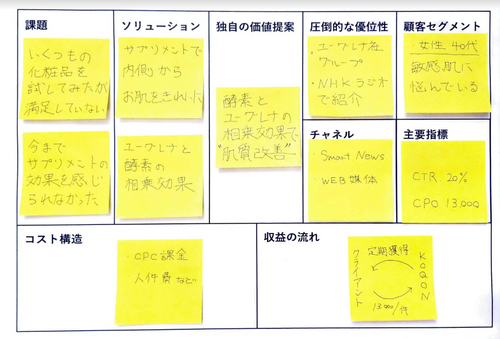 課題
いくつもの
化粧品を
試してみたが
満足していない
今まで
サプリメントの
効果を感じ
られなかった
ソリューション
サプリメントで
内側から
お肌をきれいに
ユーグレナと
酵素の
相乗効果
独自の価値提案
酵素と
ユーグレナの
相乗効果で
"肌質改善"
圧倒的な優位性
・ユーグレナ社
グループ
・NHKラジオ
で紹介
チャネル
・Smart News
・WEB媒体
顧客セグメント
・女性 40代
敏感肌に
悩んでいる
主要指標
CTR. 20%
CPO 13,000
コスト構造
・CPC課金
人件費など
収益の流れ
定期獲得
クライアント
KOQON
13,000/件